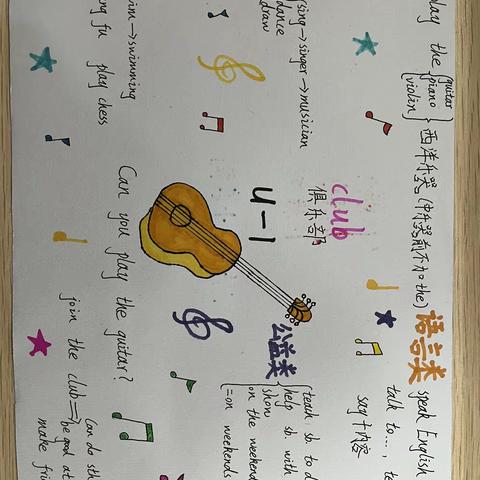 play the { guitar
piano
violin } 西洋乐器 (中乐器前不加the)
语言类
speak English
talk to...,
say + 内容
sing → singer → musician
dance
draw
club
俱乐部
U-1
公益类
{ teach sb to
help sb. with
show
on the weekend
= on weekends
swim → swimming
kung fu play chess
Can you play the guitar?
join the club ⇒
Can do sth
be good at
make